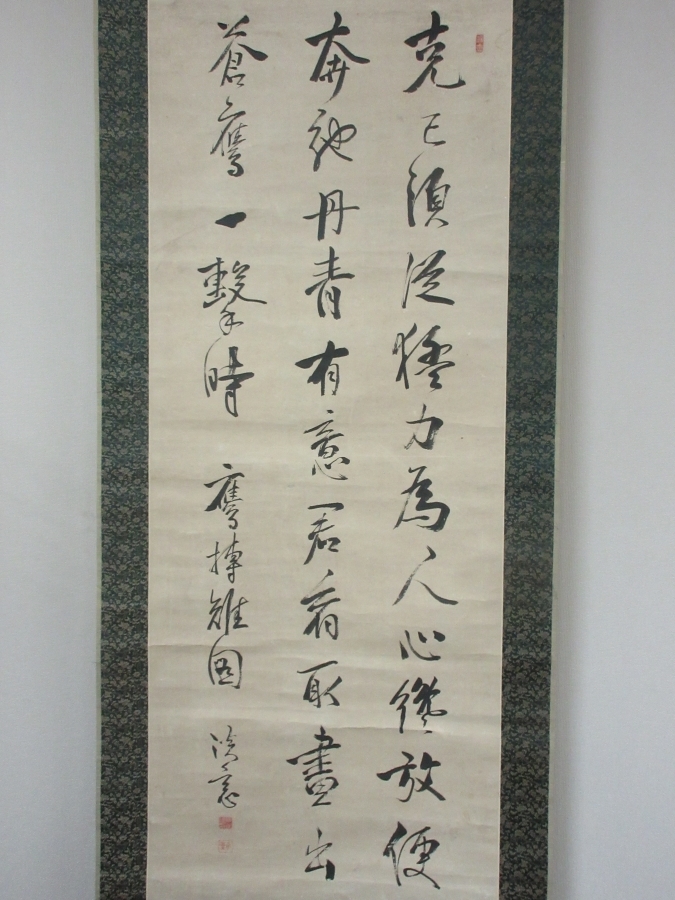 克己須從猛力為人心纔放便
奔馳丹青有意君看取畫出
蒼鷹一擊時 鷹搏雉図 淡窓